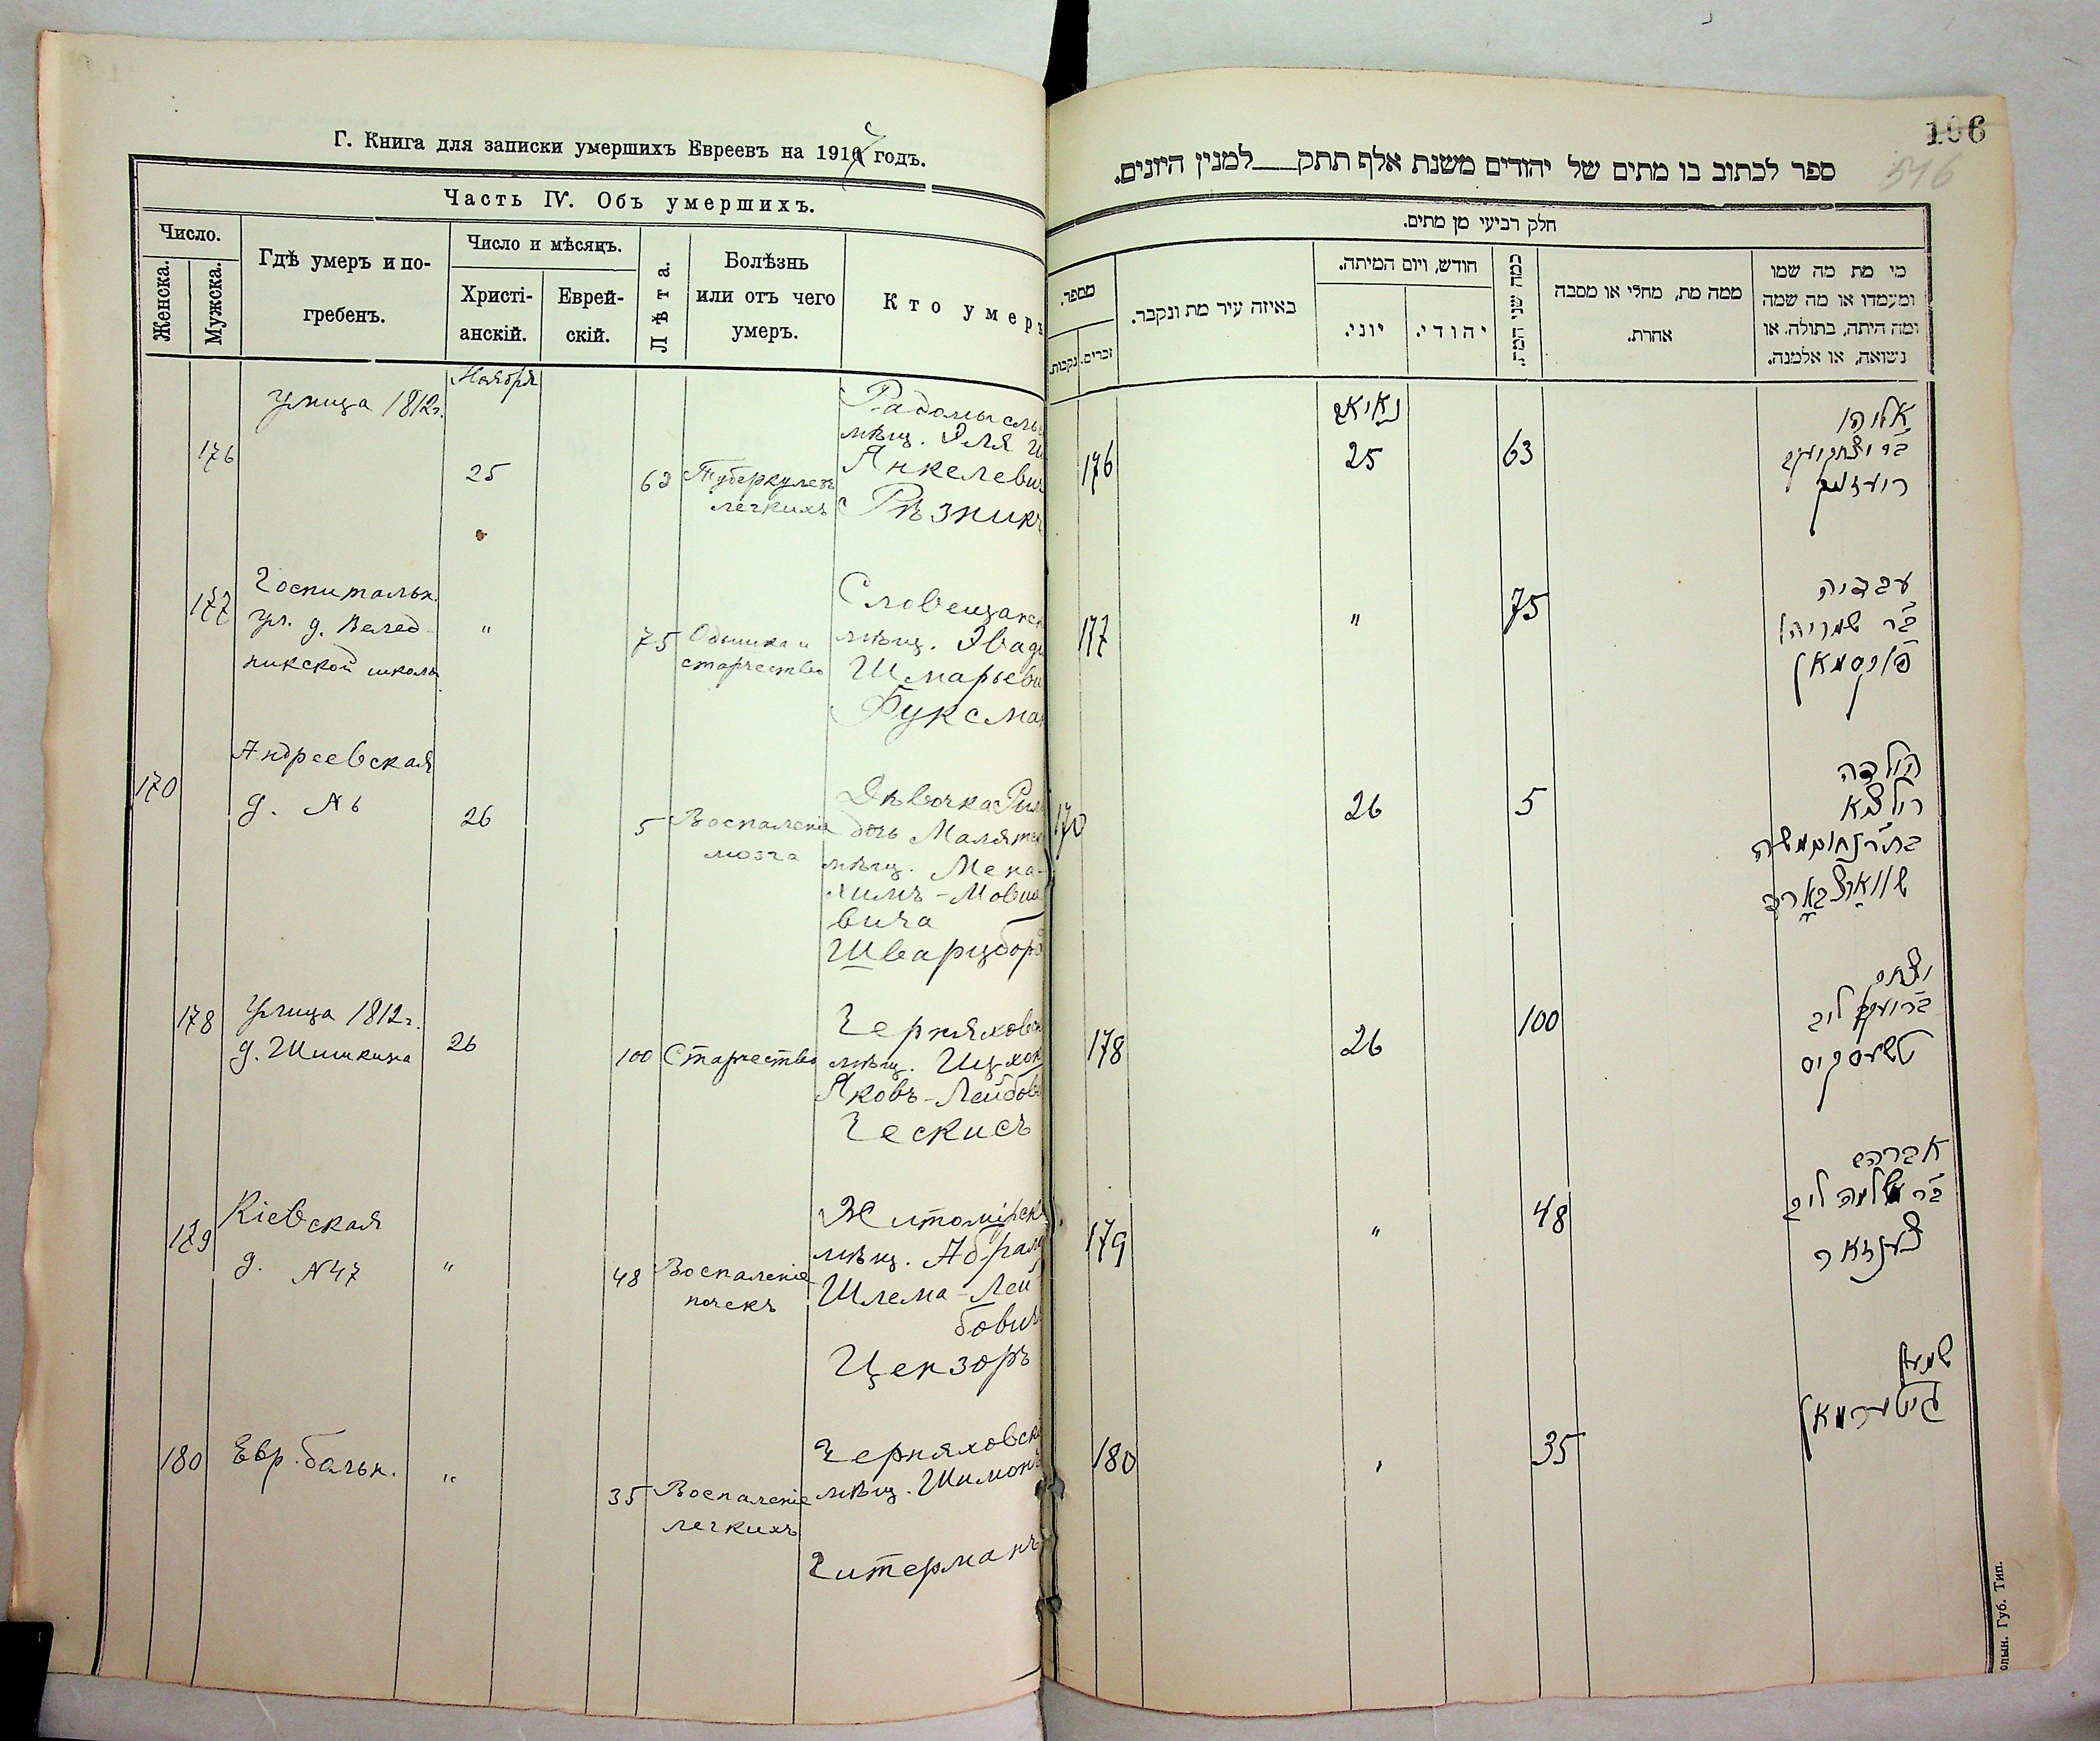 Г. Книга для записки умершихъ Евреевъ на 1917 годъ.
Часть IV. Объ умершихъ.
Число.
Женска.
Мужска.
Гдѣ умеръ и по-
гребенъ.
Число и мѣсяцъ.
Христі-
анскій.
Еврей-
скій.
Лѣта.
Болѣзнь
или отъ чего
умеръ.
Кто умеръ
Ноября
176
улица 1812г.
25
63
Туберкулезъ
легкихъ
Радомысль
мѣщ. Эля
Янкелевич
Рѣзникъ
177
Госпитальн.
ул. д. Велед-
никской школы
"
75
Одышка и
старчество
Словечанск
мѣщ. Овади
Шмарьеви
Фуксман
170
Андреевская
д. № 6
26
5
Воспаленіе
мозга
Дѣвочка
дочь Малятск
мѣщ. Мена-
химъ-Мовше
вича
Шварцборд
178
Улица 1812г.
д. Шишкина
26
100
Старчество
Черняховск
мѣщ. Ицхок
Яковъ-Лейбов
Ческисъ
179
Кіевская
д. №47
"
48
Воспаленіе
почекъ
Житомірск
мѣщ. Абрам
Шлема-Лей
бович
Цензоръ
180
Евр. больн.
"
35
Воспаленіе
легкихъ
Черняховск
мѣщ. Шимонъ
Гитерманъ
106
516
ספר לכתוב בו מתים של יהודים משנת אלף תתק___למנין היונים.
חלק רביעי מן מתים.
מספר.
נקבות.
זכרים.
באיזה עיר מת ונקבר.
חודש, ויום המיתה.
יוני.
יהודי.
כמה שני המת.
ממה מת, מחלי או מסבה
אחרת.
מי מת מה שמו
ומעמדו או מה שמה
ומה היתה, בתולה, או
נשואה, או אלמנה.
176
25
63
אליהו
177
"
75
עבדיה
בר שמריהו
פוקסמאן
170
26
5
הילדה
שווארצבארד
178
26
100
יצחק
טשעסקיס
179
"
48
אברהם
בר שלמה ליב
צענזאר
180
35
שמעון
גיטערמאן
олын. Губ. Тип.